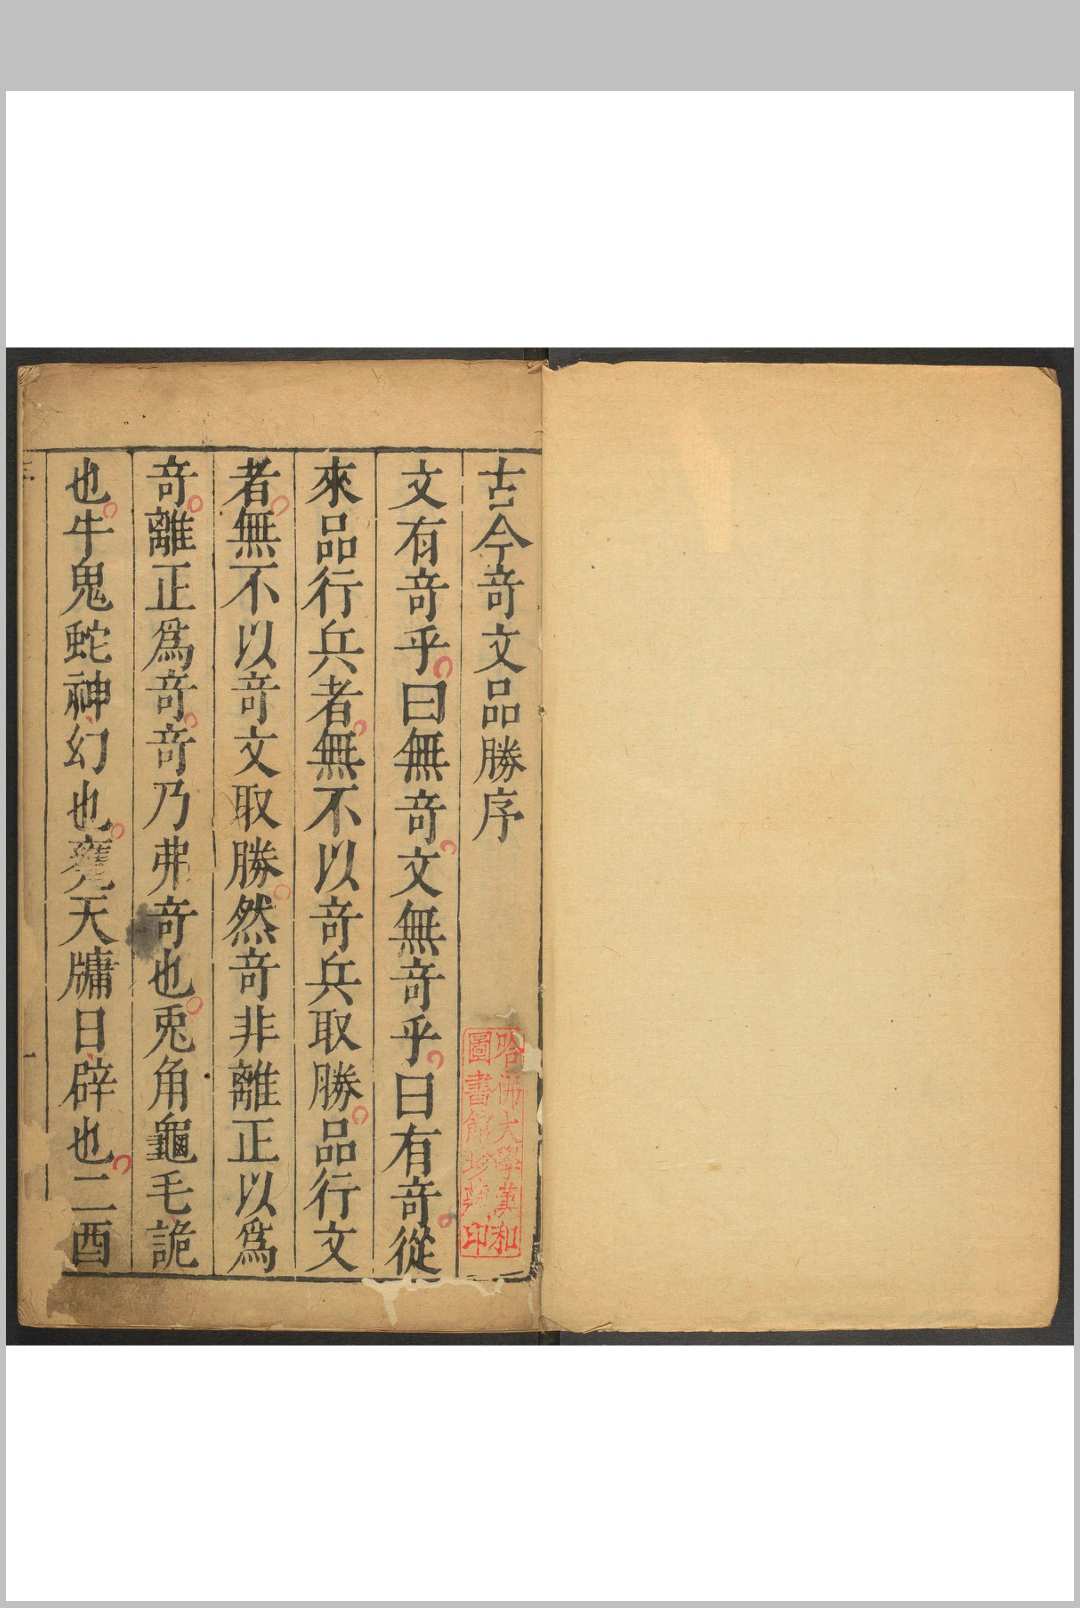 古今奇文品勝序
文有奇乎曰無奇文無奇乎曰有奇從
來品行兵者無不以奇兵取勝品行文
者無不以奇文取勝然奇非離正以為
奇離正為奇奇乃弗奇也兎角龜毛詭
也牛鬼蛇神幻也甕天牗日辟也二酉
哈佛大學漢和
圖書館珍藏印